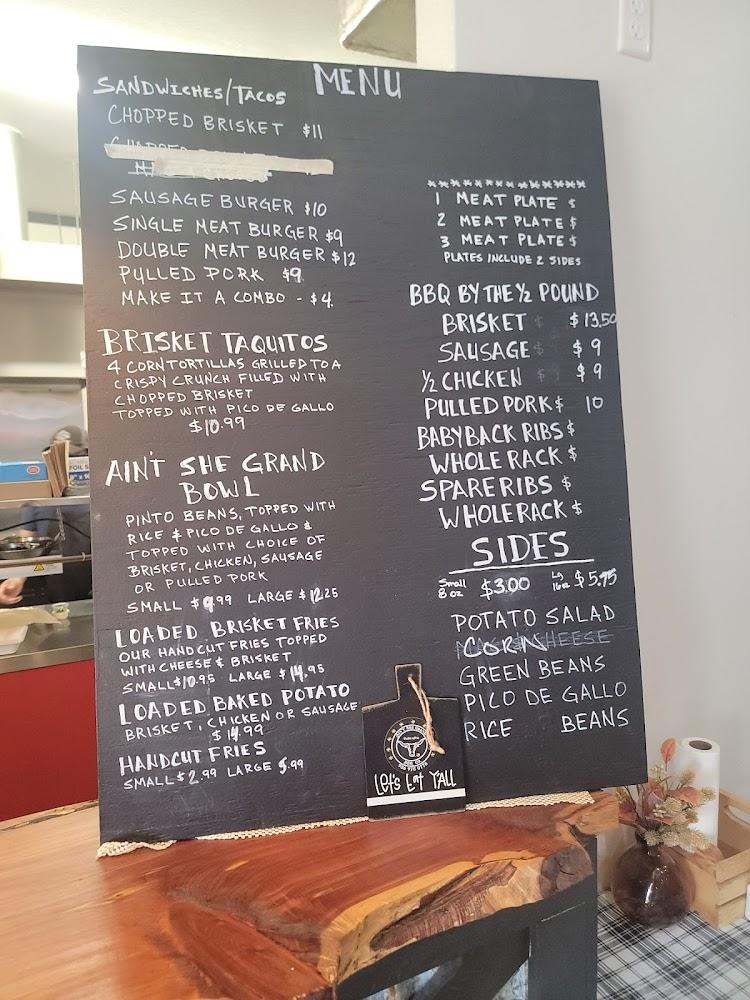 MENU
SANDWICHES/TACOS
CHOPPED BRISKET $11
SAUSAGE BURGER $10
SINGLE MEAT BURGER $9
DOUBLE MEAT BURGER $12
PULLED PORK $9
MAKE IT A COMBO - $4
BRISKET TAQUITOS
4 CORN TORTILLAS GRILLED TO A
CRISPY CRUNCH FILLED WITH
CHOPPED BRISKET
TOPPED WITH PICO DE GALLO
$10.99
AIN'T SHE GRAND
BOWL
PINTO BEANS, TOPPED WITH
RICE & PICO DE GALLO &
TOPPED WITH CHOICE OF
BRISKET, CHICKEN, SAUSAGE
OR PULLED PORK
SMALL $9.99 LARGE $12.25
LOADED BRISKET FRIES
OUR HAND CUT FRIES TOPPED
WITH CHEESE & BRISKET
SMALL $10.95 LARGE $14.95
LOADED BAKED POTATO
BRISKET, CHICKEN OR SAUSAGE
$14.99
HANDCUT FRIES
SMALL $2.99 LARGE 5.99
******************
1 MEAT PLATE $
2 MEAT PLATE $
3 MEAT PLATE $
PLATES INCLUDE 2 SIDES
BBQ BY THE ½ POUND
BRISKET $13.50
SAUSAGE $9
½ CHICKEN $9
PULLED PORK $ 10
BABYBACK RIBS $
WHOLE RACK $
SPARE RIBS $
WHOLE RACK $
SIDES
Small 8 oz $3.00 LG 16oz $5.75
POTATO SALAD
CORN
GREEN BEANS
PICO DE GALLO
RICE BEANS
Let's Eat Y'ALL